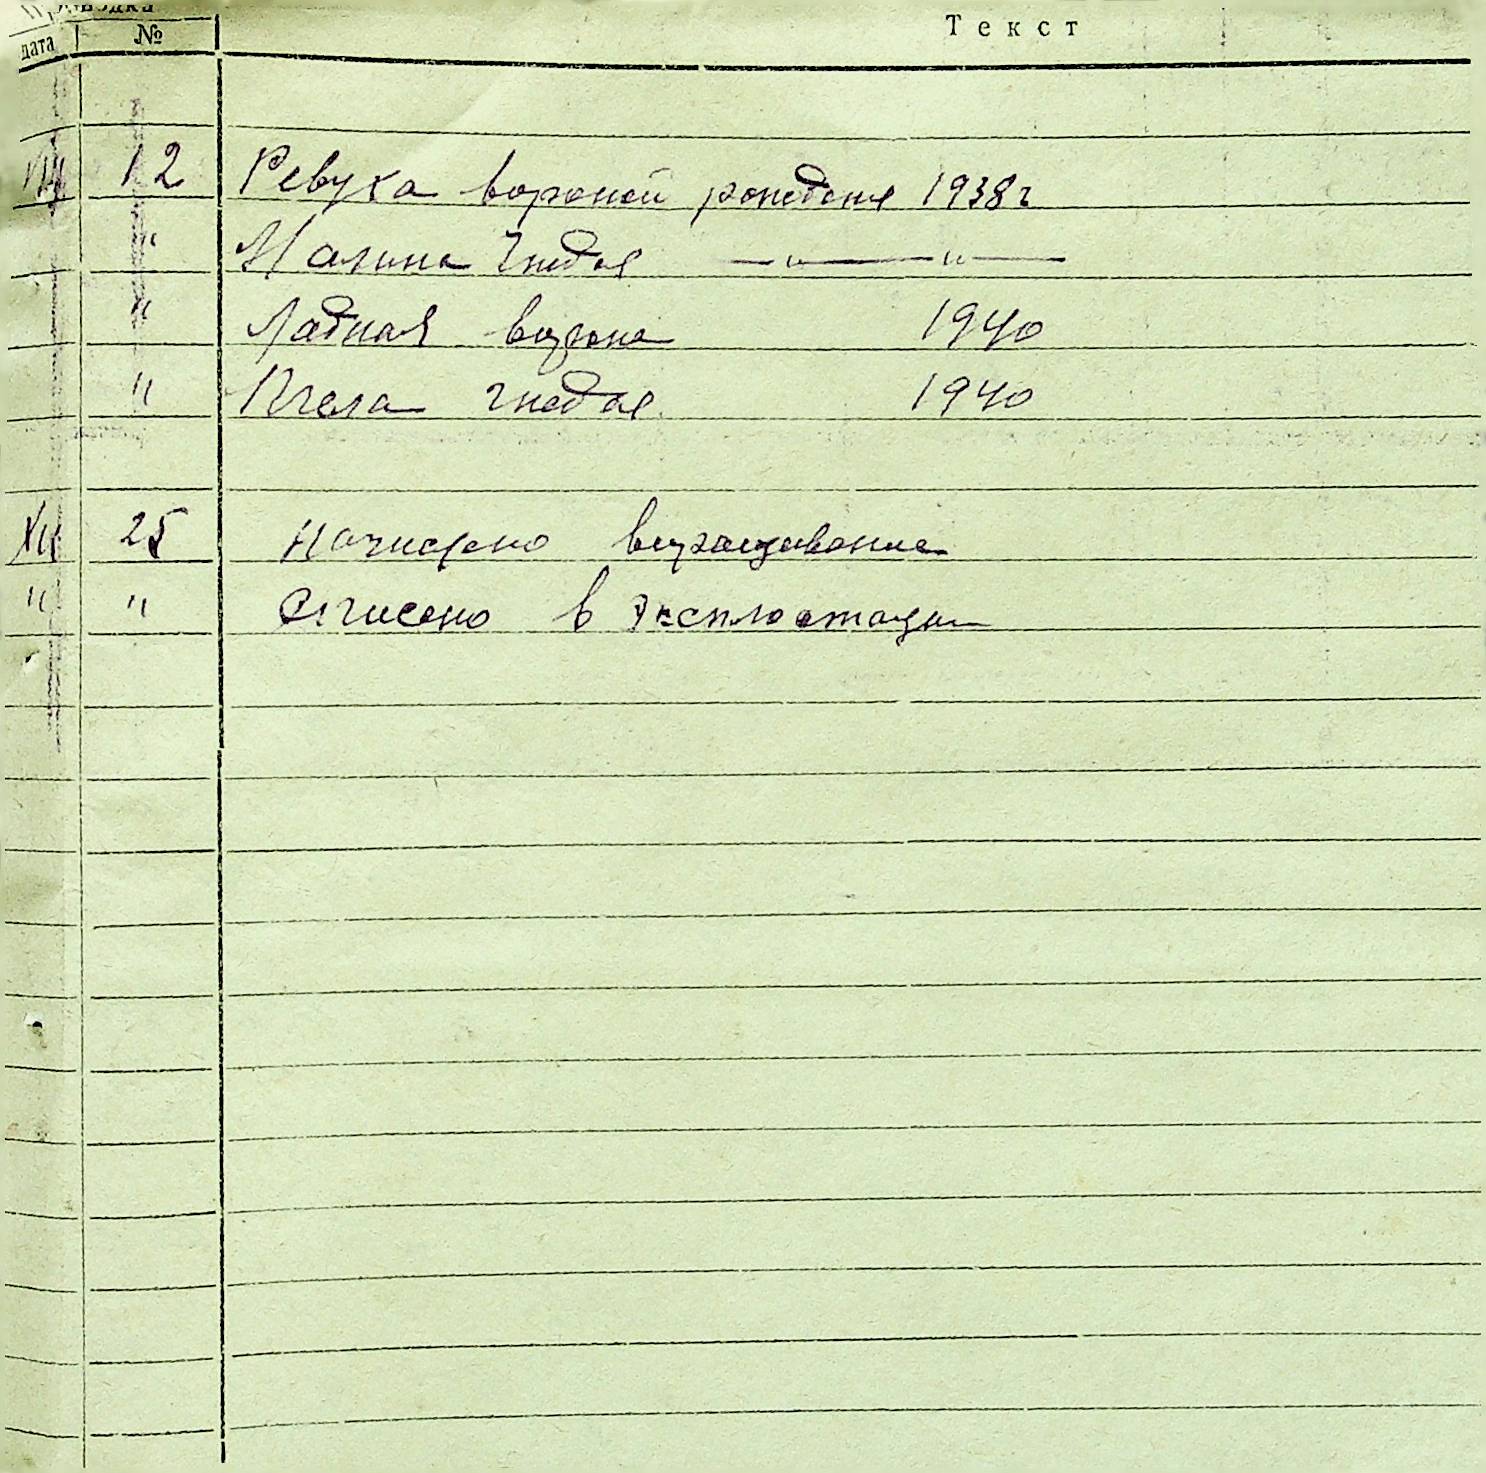 дата № Текст
VIII 12 Ревуха вороной рождения 1938г
" Малина гнедая —"—"—
" Ладная ворона 1940
" Пчела гнедая 1940
XII 25 Начислено выращивание
" " Списено в эксплоатации